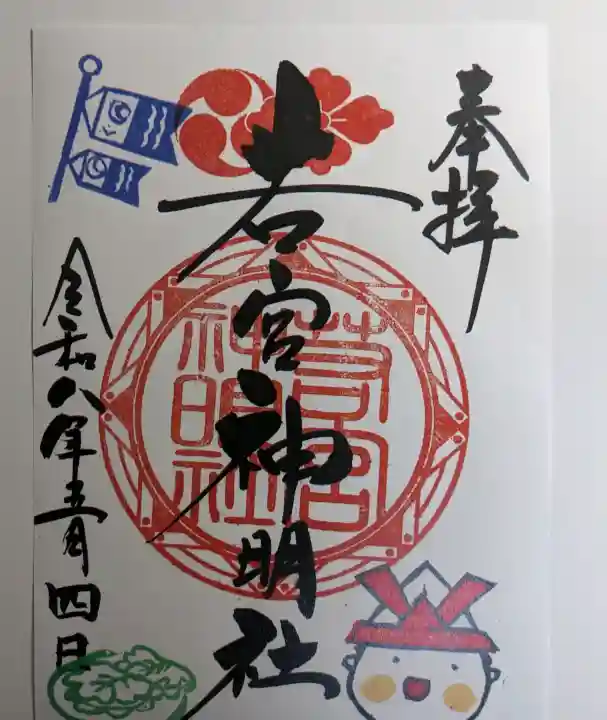 奉拝
若宮神明社
若宮神明社
令和八年五月四日